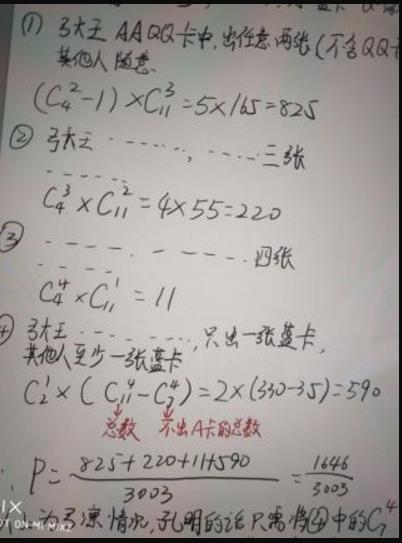 (1) 弓大王 AAQQ卡中,出任意两张(不含QQ
其他人随意.
(C₄²-1)×C₁₁³=5×165=825
② 弓大王 ------, ---- 三张
-----
C₄³×C₁₁²=4×55=220
③ ---- - ----- 四张
-----
C₄⁴×C₁₁¹=11
弓大王 ------, 只出一张蓝卡,
其他人至少一张蓝卡
C₂¹×(C₁₁⁴-C₇⁴)=2×(330-35)=590
总数 不出A卡的总数
P=(825+220+11+590)/3003=1646/3003
情况,孔明的话只需将④中的C₇⁴
MI MIX2